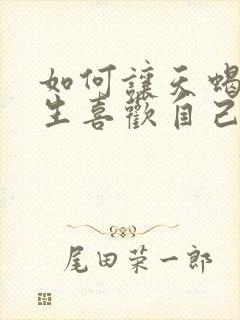 如何讓天蝎
生喜歡自己
尾田荣一郎